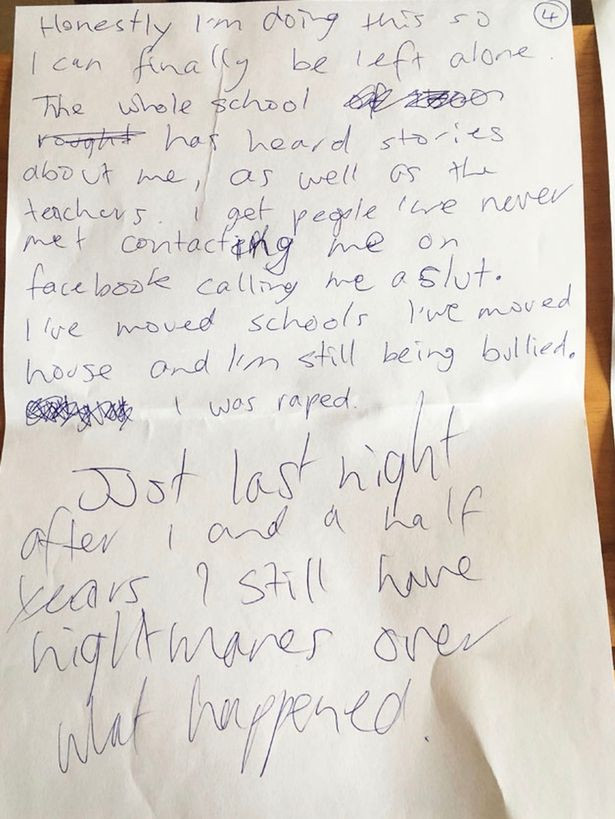 4
Honestly I'm doing this so
I can finally be left alone.
The whole school
rought has heard stories
about me, as well as the
teachers. I get people I've never
met contacting me on
facebook calling me a slut.
I've moved schools I've moved
house and I'm still being bullied.
I was raped.
Just last night
after 1 and a half
years I still have
nightmares over
what happened.